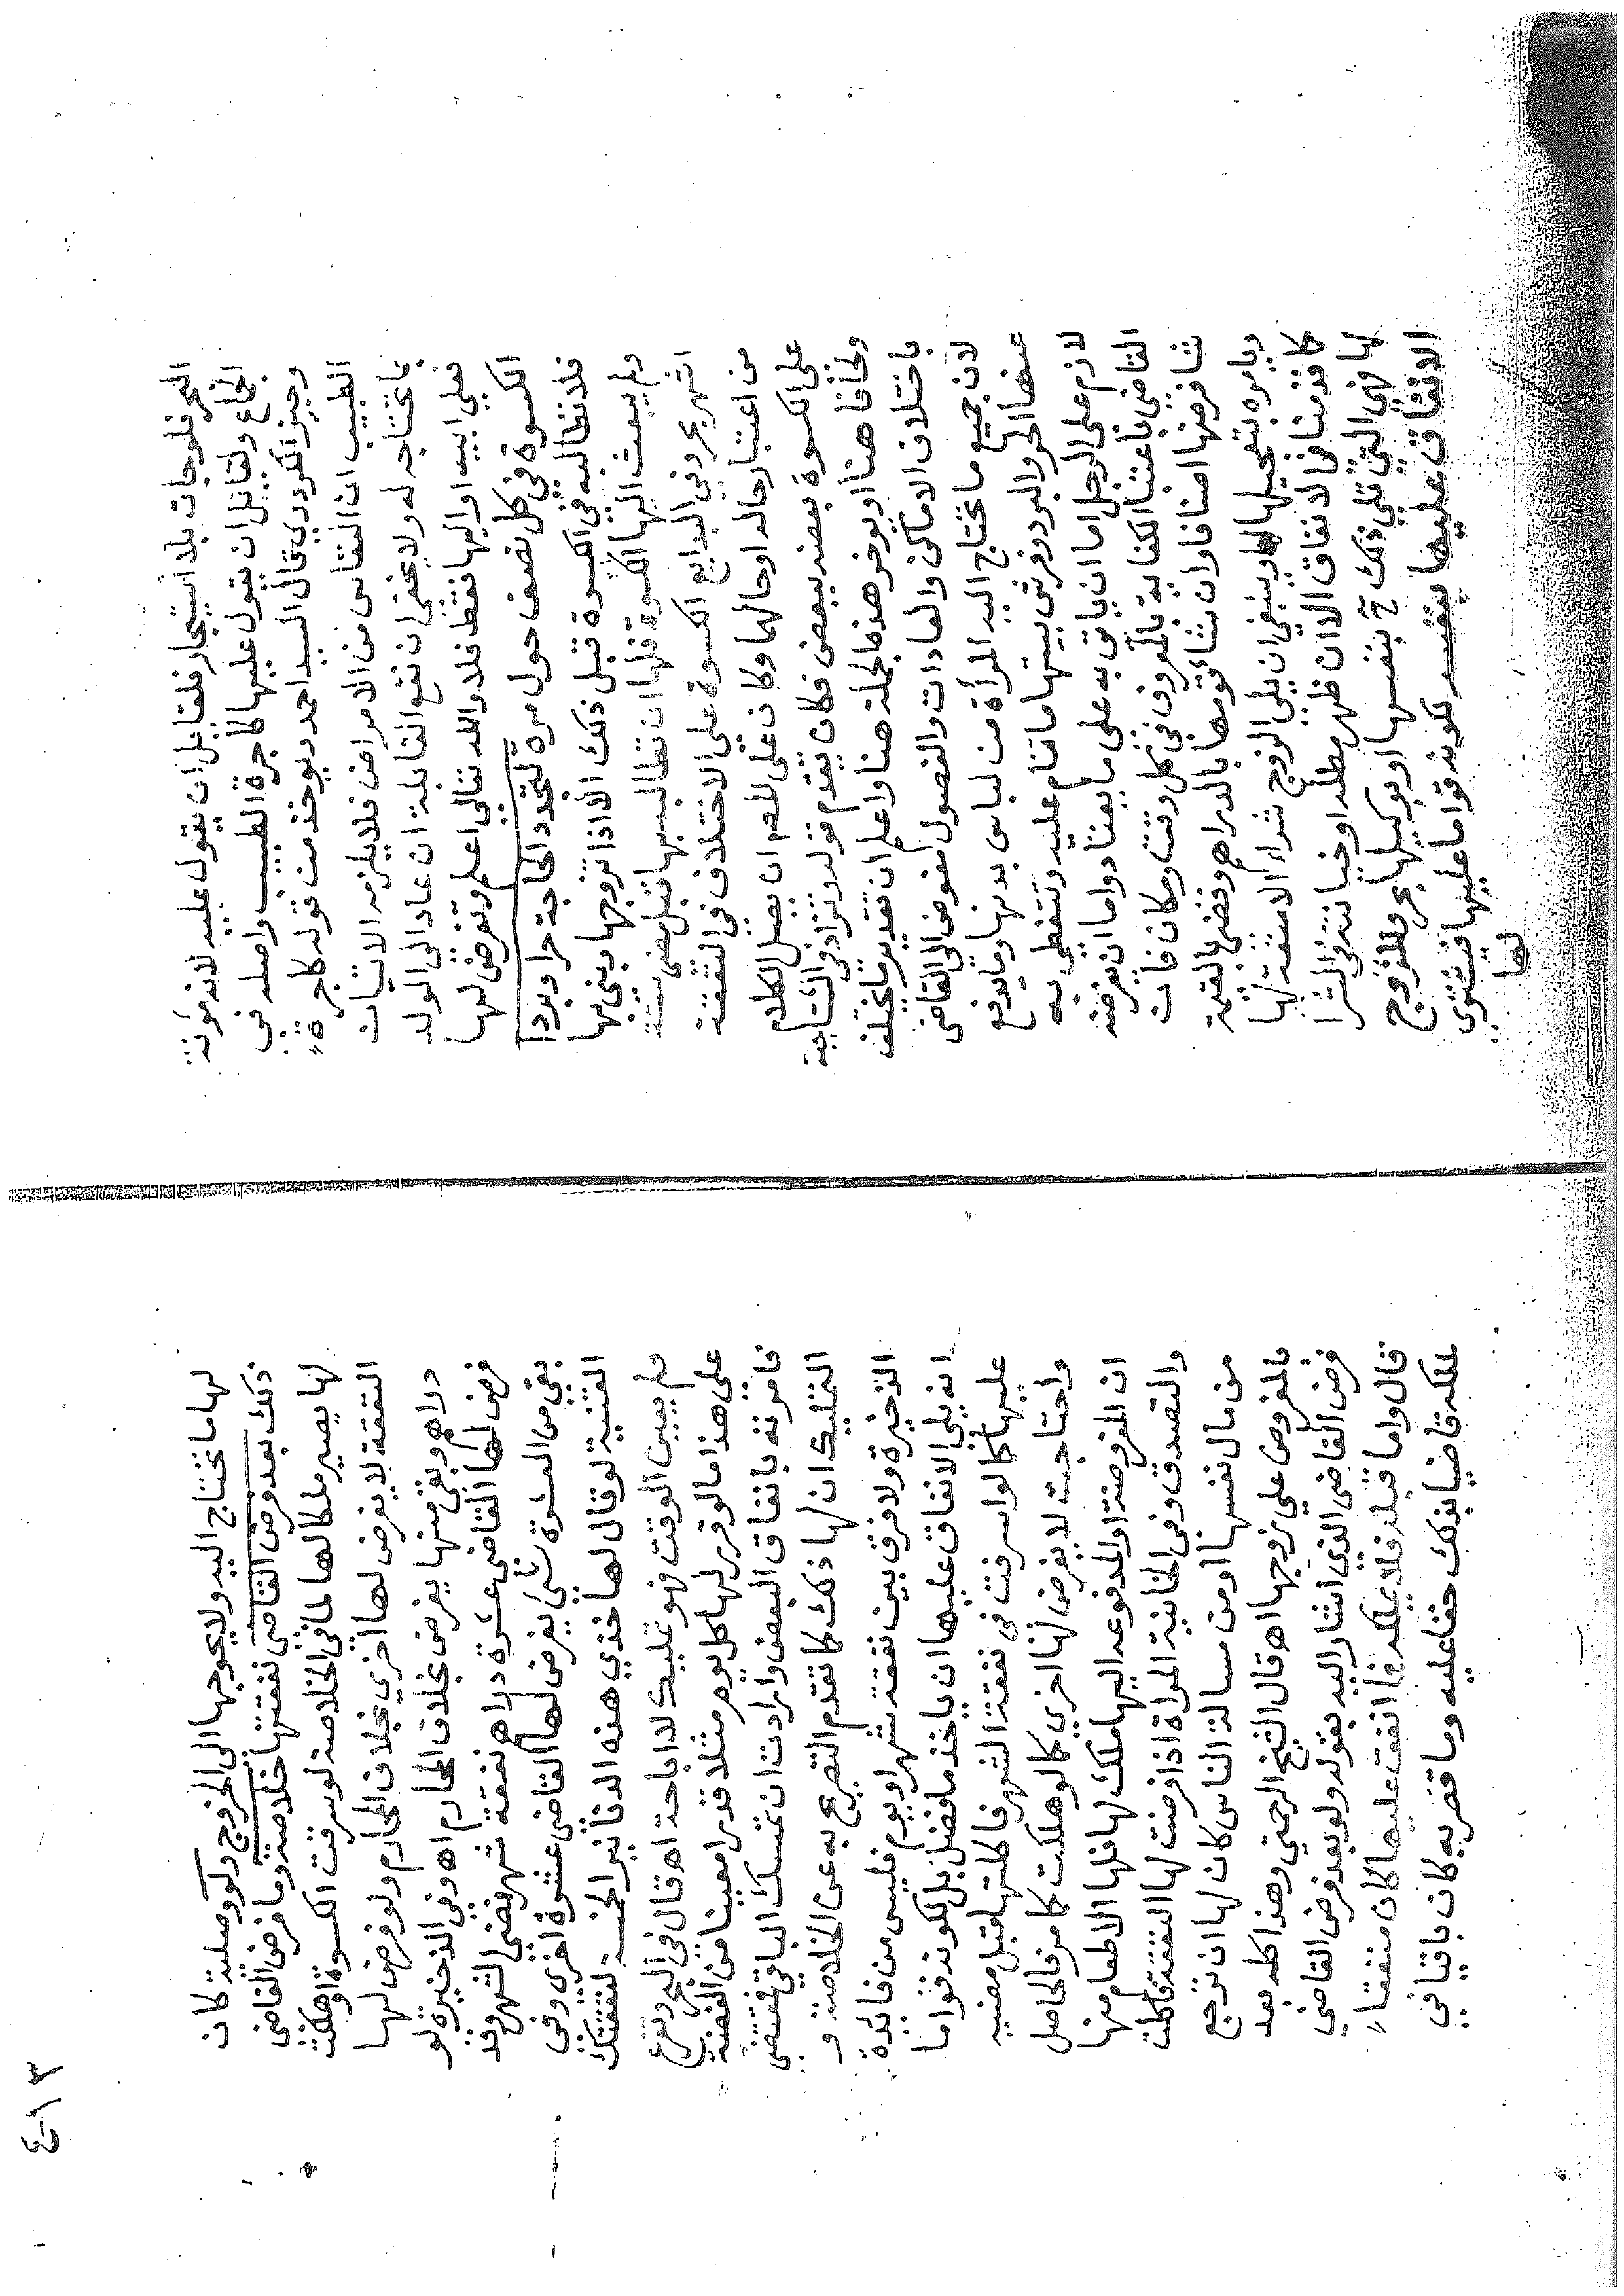 البحر فلو جات بلا استيجار فلقائل ان يقول عليه لانه مؤنة
الجماع ولقائل ان يقول عليها كاجرة الطبيب واصله في
وجيز الكردري قال السيد احمد ويوخذ من قوله كاجرة
الطبيب ان النفاس من الامراض فلا يلزمه الاتيان
بما تحتاجه له ولا يخفى ان نفع القابلة ان عاد الى الولد
فعلى ابيه او اليها فقط فلا والله تعالى اعلم وتفرض لها
الكسوة في كل نصف حول مرة لتجدد الحاجة حرا وبردا
فلا تطالبه في الكسوة قبل ذلك الا اذا تزوجها وبنى بها
ولم يبعث اليها الكسوة فلها ان تطالبه بها قبل مضي ستة
اشهر بحر وفي البدايع الكسوة على الاختلاف في النفقة
من اعتبار حاله او حالهما وكان على المص ان يصل الكلام
على الكسوة بعضه ببعض فكان يقدم قوله وتزاد في الشتا جبة
ولحافا هنا او يوخر هذه الجملة هنا واعلم ان تقدير ما يختلف
باختلاف الاماكن والعادات والفصول مفوض الى القاضي
لان جميع ما تحتاج اليه المرأة من لباس بدنها وما يدفع
عنها الحر والبرد وفرش بيتها ما تنام عليه وتتغطى به
لازم على الرجل اما ان ياتي به على ما يعتاد واما ان يفرضه
القاضي باعتبار الكفاية بالمعروف في كل وقت ومكان فان
شا فرضها اصنافا وان شاء قومها بالدراهم وقضى بالقيمة
ويامره بتعجيلها وينبغي ان يلي الزوج شراء الامتعة لها
كما قدمنا في الانفاق الا ان ظهر مطله او خيانته في الشرا
لها فهي التي تلي ذلك ح بنفسها او بوكيلها بحر وللزوج
الانفاق عليها بنفسه لكونه قواما عليها فيشتري
لها
لها ما تحتاج اليه ولا يحوجها الى الخروج ولو وصلية كان
ذلك بعد فرض القاضي نفقتها خلاصة وما فرض القاضي
لها يصير ملكا لها لما في الخلاصة لو سرقت الكسوة او هلكت
النفقة لا يفرض لها اخرى بخلاف المحارم ولو فرض لها
دراهم وبقي منها يفرض بخلاف المحارم اه وفي الذخيرة لو
فرض لها القاضي عشرة دراهم نفقة شهر فمضى الشهر وقد
بقي من العشرة شيء يفرض لها القاضي عشرة اخرى وفي
القنية لو قال لها خذي هذه الدنانير الخمسة لنفقتك
ولم يعين الوقت فهو تمليك لا اباحة اه قال في البحر وتفرع
على هذا ما لو قرر لها كل يوم مثلا قدرا معينا من الفضة
فامرته بانفاق البعض وارادت ان تمسك الباقي فمقتضى
التمليك ان لها ذلك كما تقدم التصريح به عن الخلاصة و
الذخيرة ولا فرق بين نفقة شهر او يوم فليس من فائدة
انه يلي الانفاق عليها ان ياخذ ما فضل بل لكونه قواما
عليها كما لو اسرفت في نفقة الشهر فاكلتها قبل مضيه
واحتاجت لا يفرض لها اخرى كما لو هلكت كما مر فالحاصل
ان المفروضة او المدفوعة اليها ملك لها فلها الاطعام منها
والتصدق وفي الخانية المراة اذا فرضت لها النفقة فاكلت
من مال نفسها او من مسالة الناس كان لها ان ترجع
بالمفروض على زوجها اه قال الشيخ الرحمتي وهذا كله بعد
فرض القاضي الذي اشار اليه بقوله ولو بعد فرض القاضي
قال واما قبله فلا يملكه فما انفقت عليها كان منفقا
لملكه قاضيا بذلك حقا عليه وما قصر به كان باقيا في
٤١٣